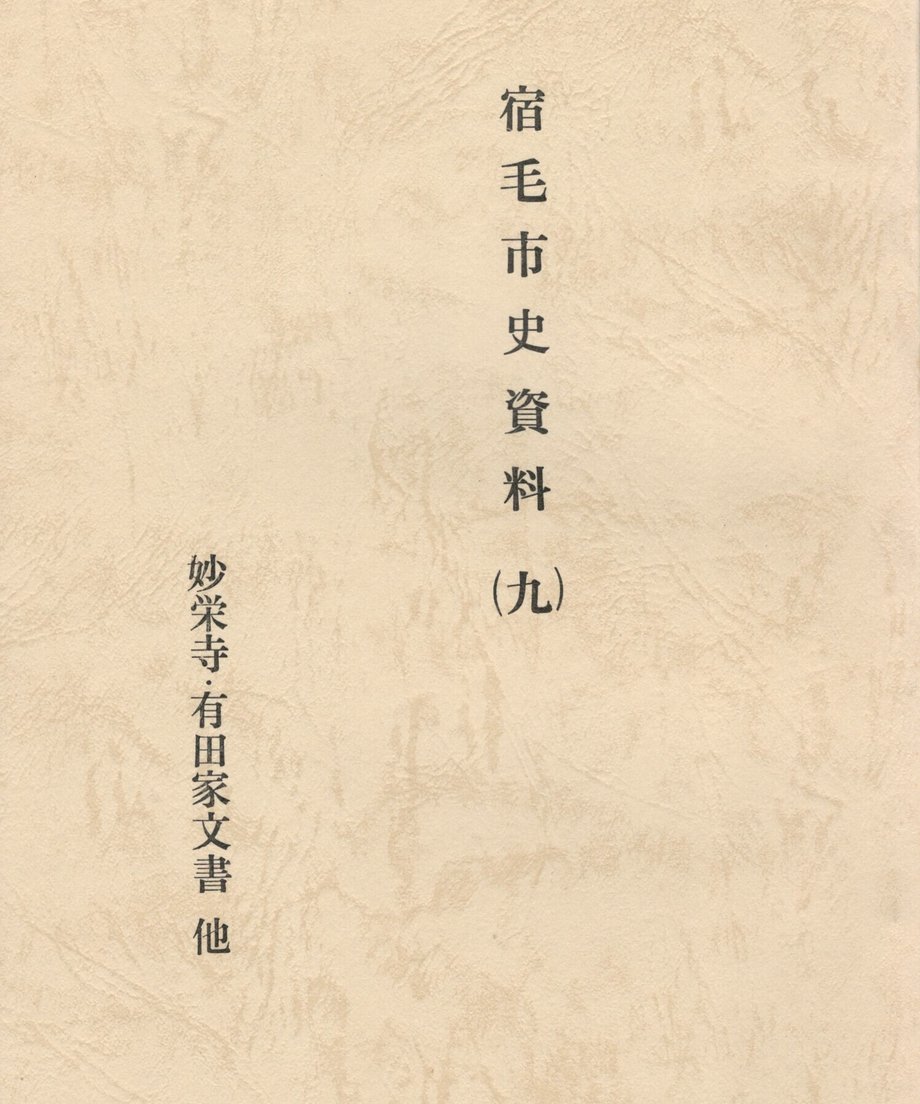 宿毛市史資料(九)
妙栄寺・有田家文書 他